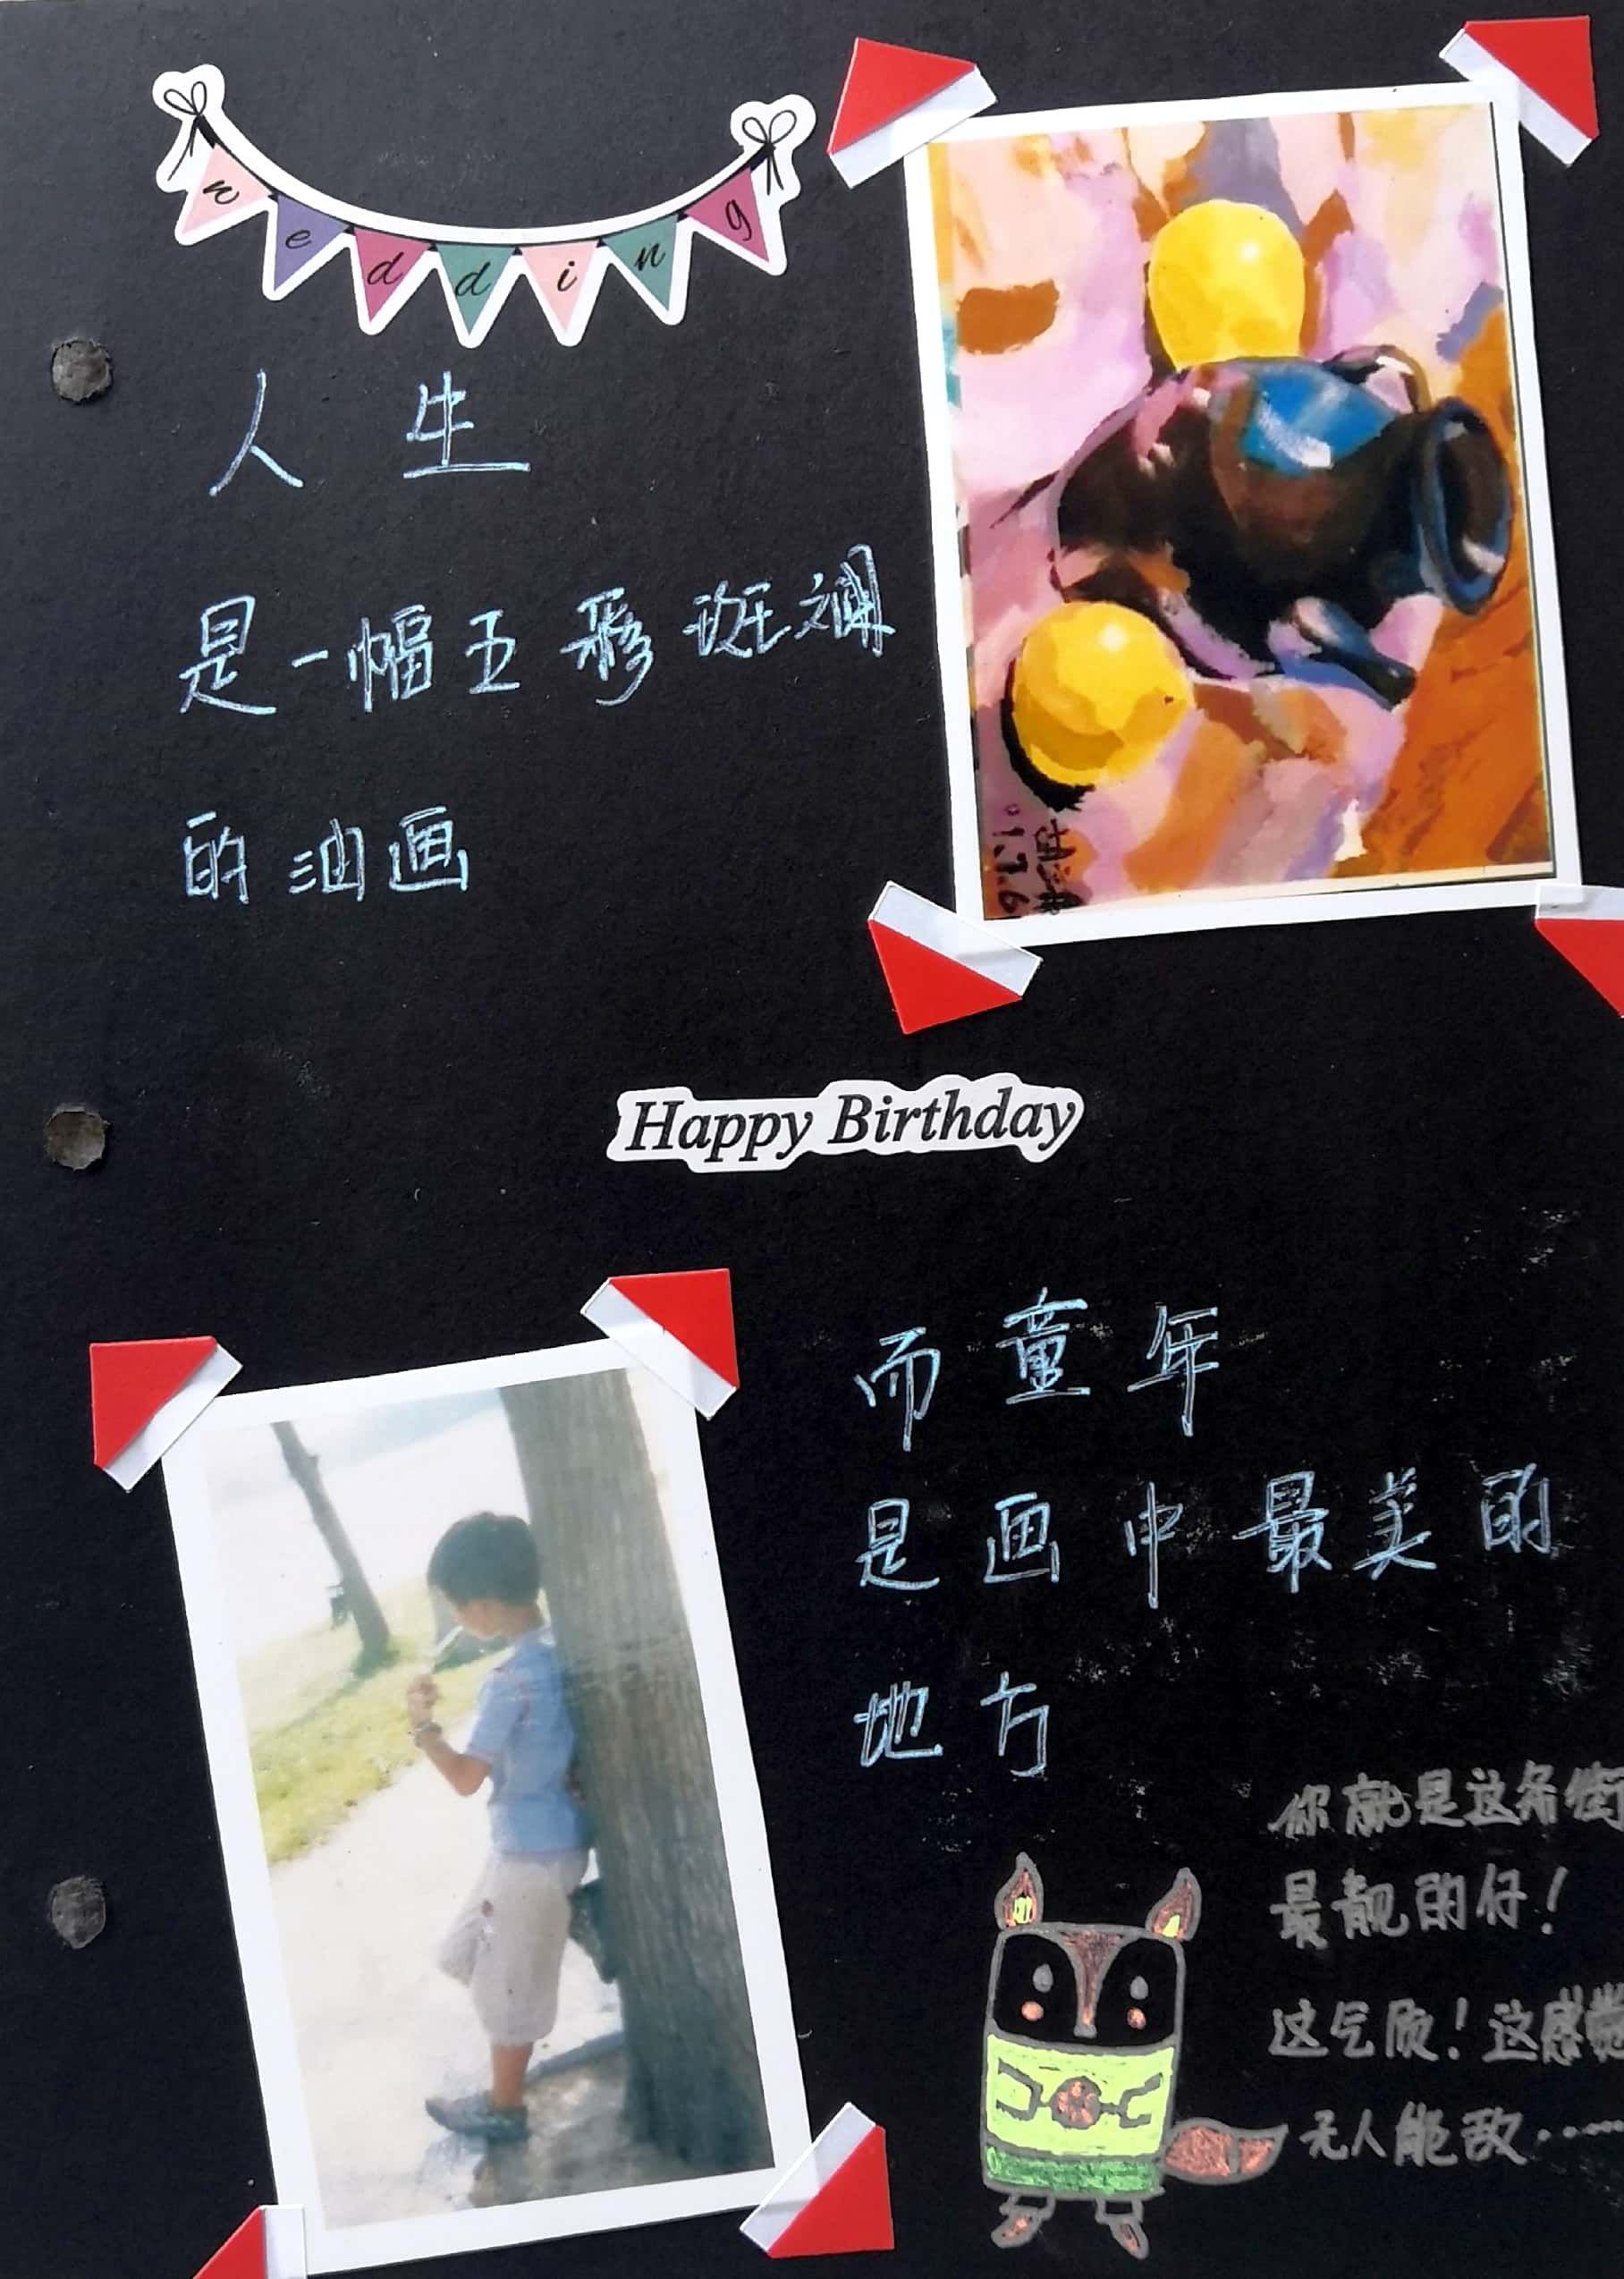 wedding
人生
是一幅五彩斑斓
的油画
Happy Birthday
而童年
是画中最美的
地方
你就是这条街
最靓的仔！
这气质！这感觉
无人能敌……